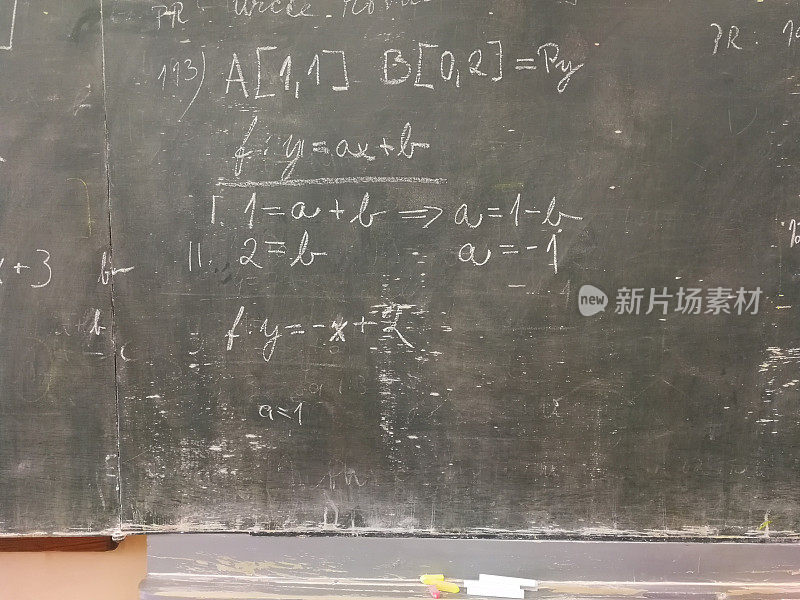 PR
113) A[1,1] B[0,2] = Py
PR.
f: y = ax + b
I. 1 = a + b ⇒ a = 1 - b
II. 2 = b a = -1
x + 3
b
f: y = -x + 2
a = 1
new 新片场素材